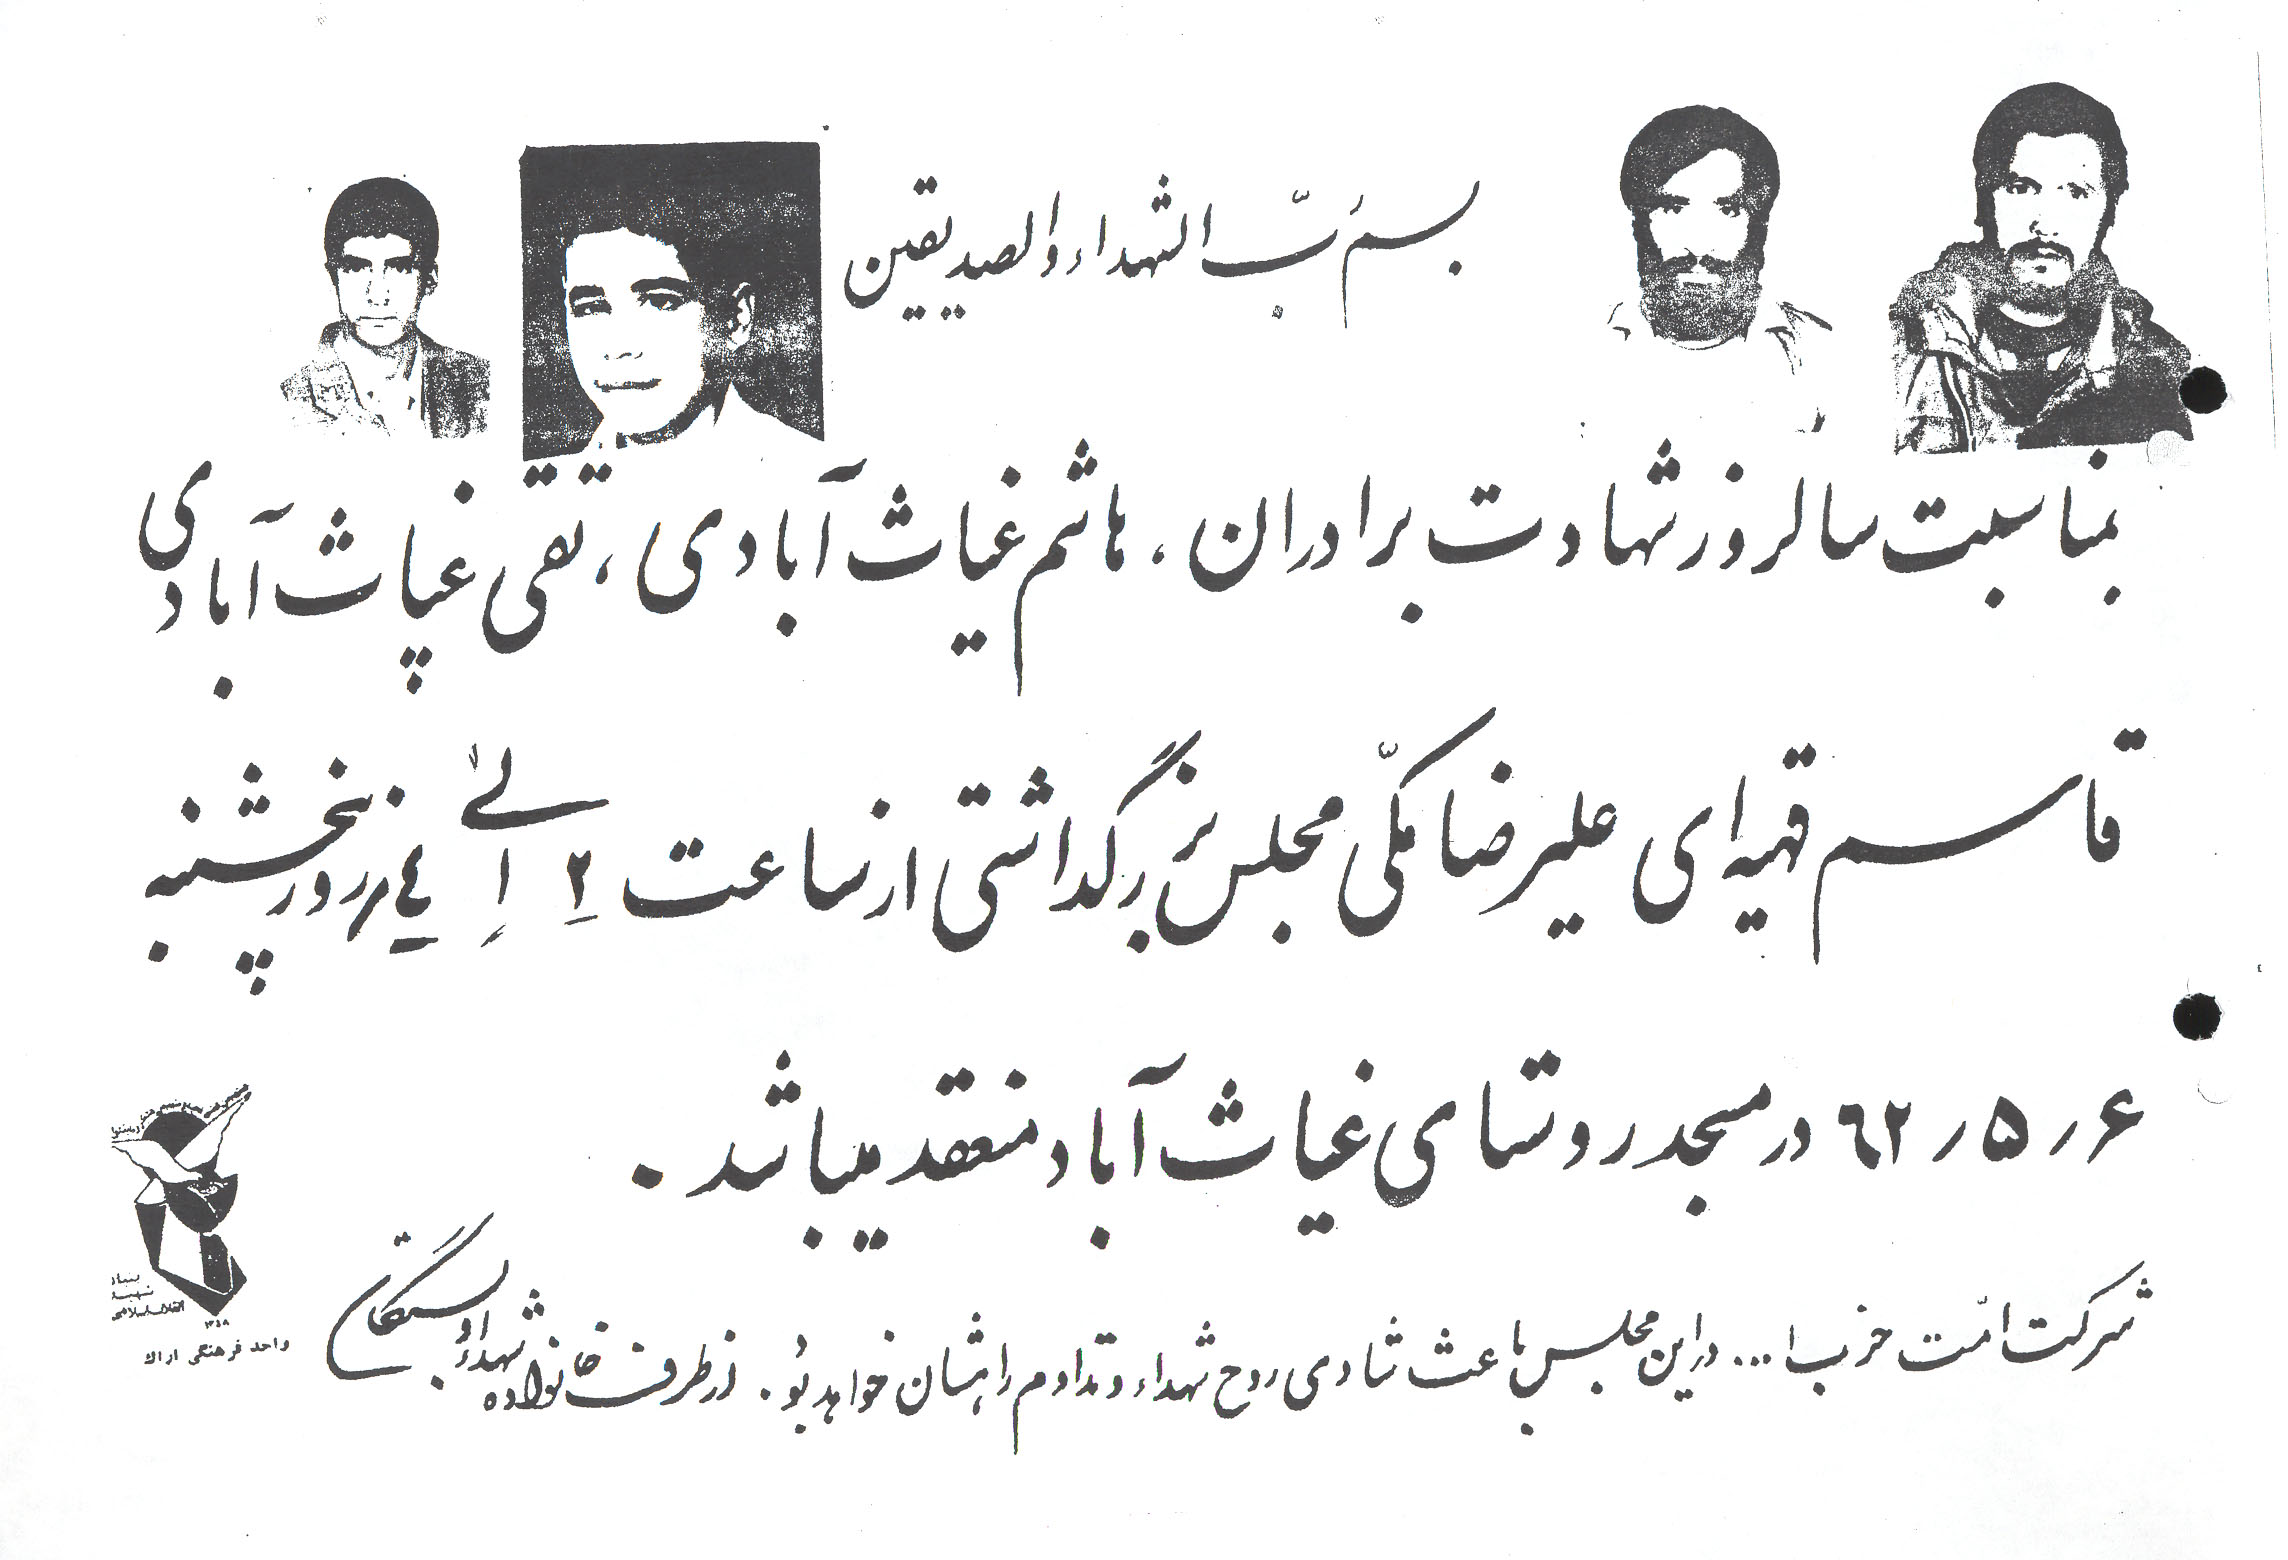 بسم رب الشهداء والصدیقین
بمناسبت سالروز شهادت برادران، هاشم غیاث آبادی، تقی غیاث آبادی
قاسم قهیه ای علیرضا ملکی مجلس بزرگداشتی از ساعت ۲ الی ۴ روز پنجشنبه
۶ر۵ر۶۲ در مسجد روستای غیاث آباد منعقد میباشد.
شرکت امّت حزب ا... در این مجلس باعث شادی روح شهداء و تداوم راهشان خواهد بود. از طرف خانواده شهداء و بستگان
بنیاد
شهید
انقلاب اسلامی
۱۳۵۸
واحد فرهنگی اراک